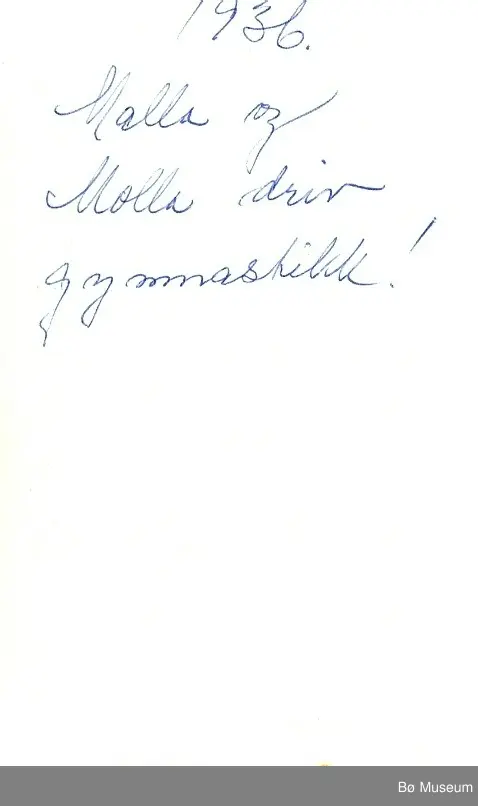 1936.
Malla og
Molla driv
gymnastikk!
Bø Museum